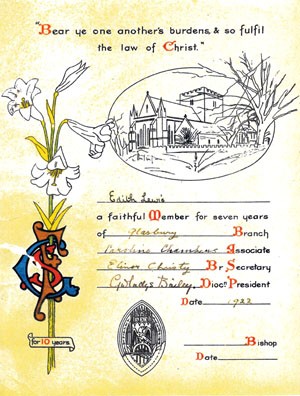 "Bear ye one another's burdens, & so fulfil
the law of Christ."
Edith Lewis
a faithful Member for seven years
of Glasbury Branch
Caroline Chambers Associate
Elinor Christy Br Secretary
Gwladys Bailey Diocⁿ President
Date 1922
for 10 years
Bishop
Date